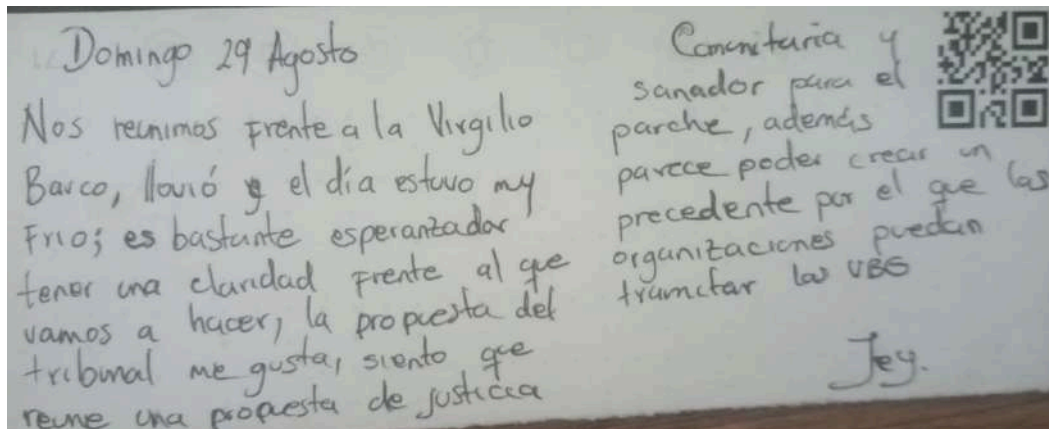 Domingo 29 Agosto
Nos reunimos frente a la Virgilio
Barco, llovió y el día estuvo my
Frio; es bastante esperanzador
tener una claridad frente al que
vamos a hacer, la propuesta del
tribunal me gusta, siento que
reune una propuesta de justicia
Comunitaria y
sanador para el
parche, además
parece poder crear un
precedente por el que las
organizaciones puedan
tramitar las VBG
Jey.